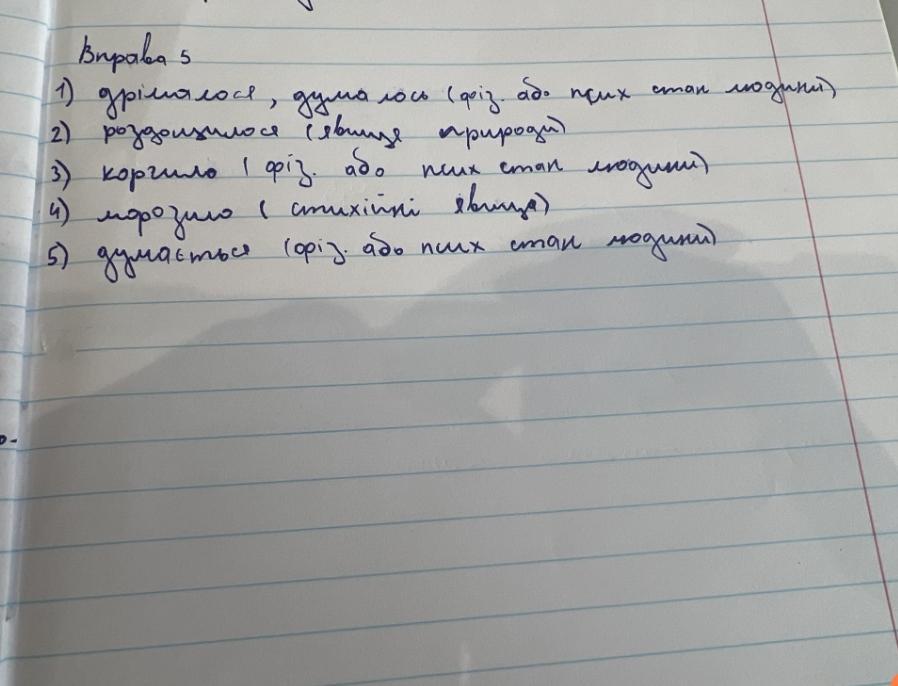 Вправа 5
1) дрімалося, думалось (фіз. або псих стан людини)
2) роздощилося (явище природи)
3) корчило (фіз. або псих стан людини)
4) морозило (стихійні явища)
5) думається (фіз. або псих стан людини)